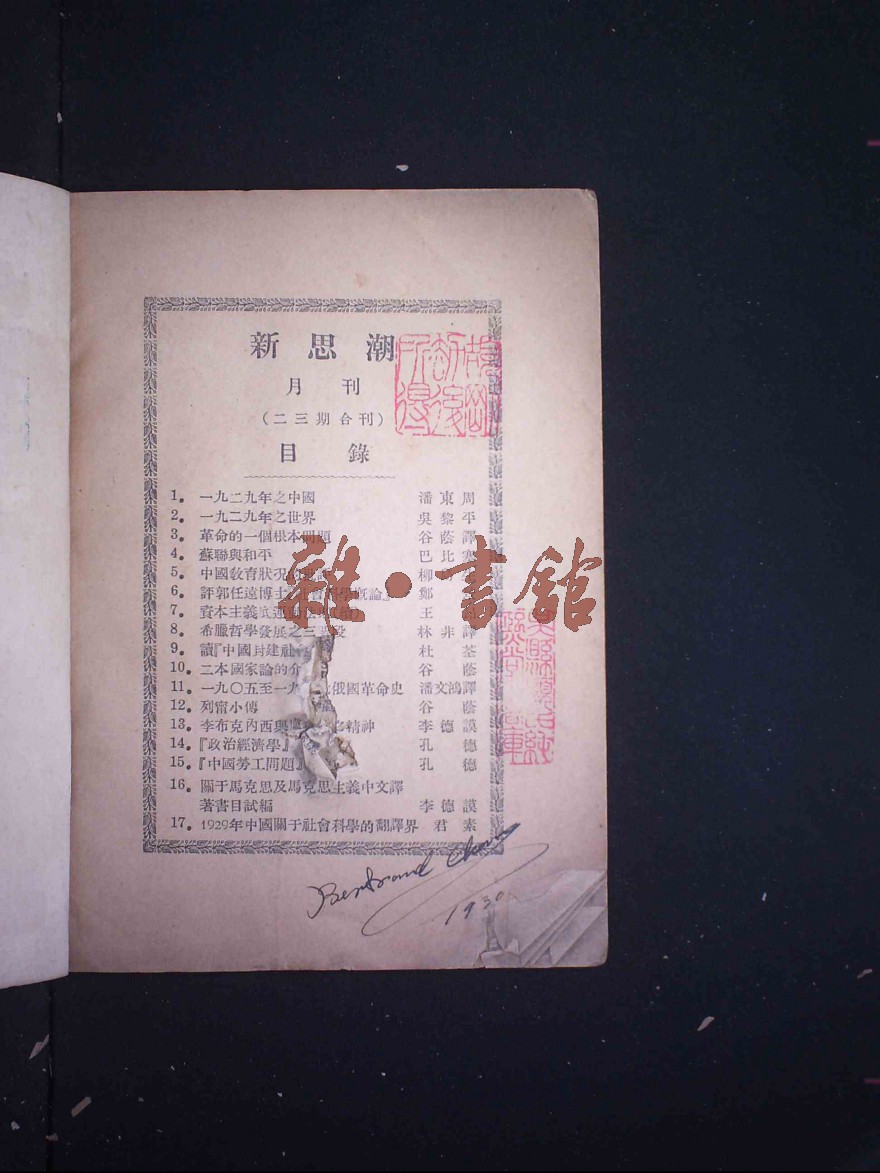 新思潮
月刊
（二三期合刊）
目錄
1. 一九二九年之中國 潘東周
2. 一九二九年之世界 吳黎平
3. 革命的一個根本問題 谷蔭譯
4. 蘇聯與和平 巴比塞
5. 中國敎育狀况 柳
6. 評郭任遠博士 社會科學槪論』 鄭
7. 資本主義 王
8. 希臘哲學發展之三 段 林非譯
9. 讀『中國封建社 杜荃
10. 二本國家論的介 谷蔭
11. 一九〇五至一九 俄國革命史 潘文鴻譯
12. 列甯小傳 谷蔭
13. 李布克內西與 精神 李德謨
14. 『政治經濟學』 孔德
15. 『中國勞工問題』 孔德
16. 關于馬克思及馬克思主義中文譯
著書目試編 李德謨
17. 1929年中國關于社會科學的翻譯界 君素
劫後
所得
Bertrand
1930
雜·書館